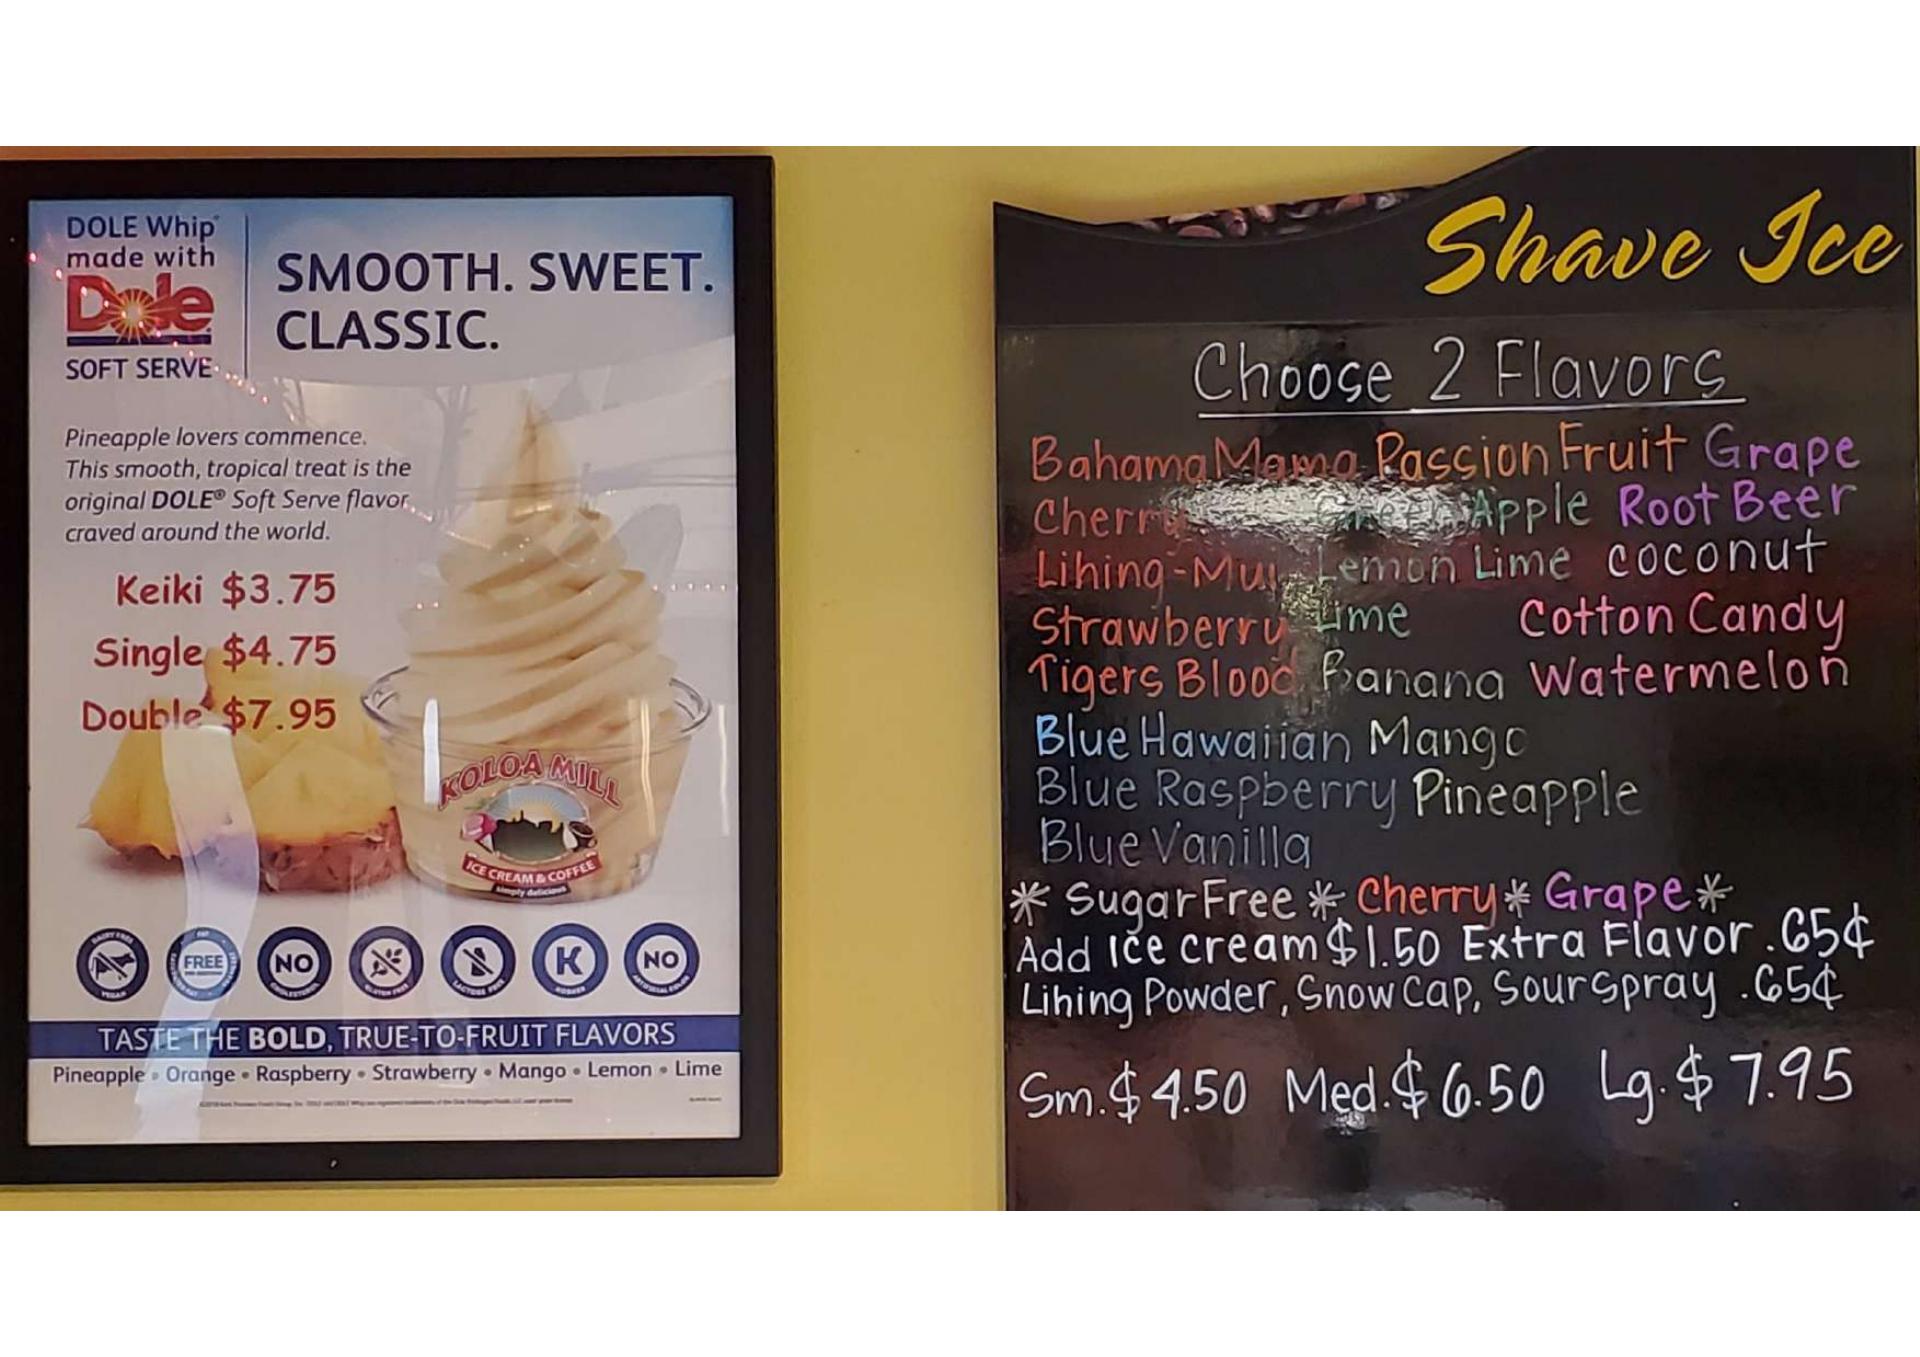 DOLE Whip®
made with
Dole
SOFT SERVE
SMOOTH. SWEET.
CLASSIC.
Pineapple lovers commence.
This smooth, tropical treat is the
original DOLE® Soft Serve flavor
craved around the world.
Keiki $3.75
Single $4.75
Double $7.95
KOLOA MILL
ICE CREAM & COFFEE
simply delicious
DAIRY FREE
VEGAN
FAT
FREE
NO
CHOLESTEROL
GLUTEN FREE
LACTOSE FREE
K
KOSHER
NO
ARTIFICIAL COLOR
TASTE THE BOLD, TRUE-TO-FRUIT FLAVORS
Pineapple • Orange • Raspberry • Strawberry • Mango • Lemon • Lime
Shave Ice
Choose 2 Flavors
Bahama Mama Passion Fruit Grape
Cherry Green Apple Root Beer
Lihing-Mui Lemon Lime coconut
Strawberry Lime Cotton Candy
Tigers Blood Banana Watermelon
Blue Hawaiian Mango
Blue Raspberry Pineapple
Blue Vanilla
* Sugar Free * Cherry * Grape *
Add Ice cream $1.50 Extra Flavor .65¢
Lihing Powder, Snow Cap, Sour Spray .65¢
Sm. $4.50 Med. $6.50 Lg. $7.95